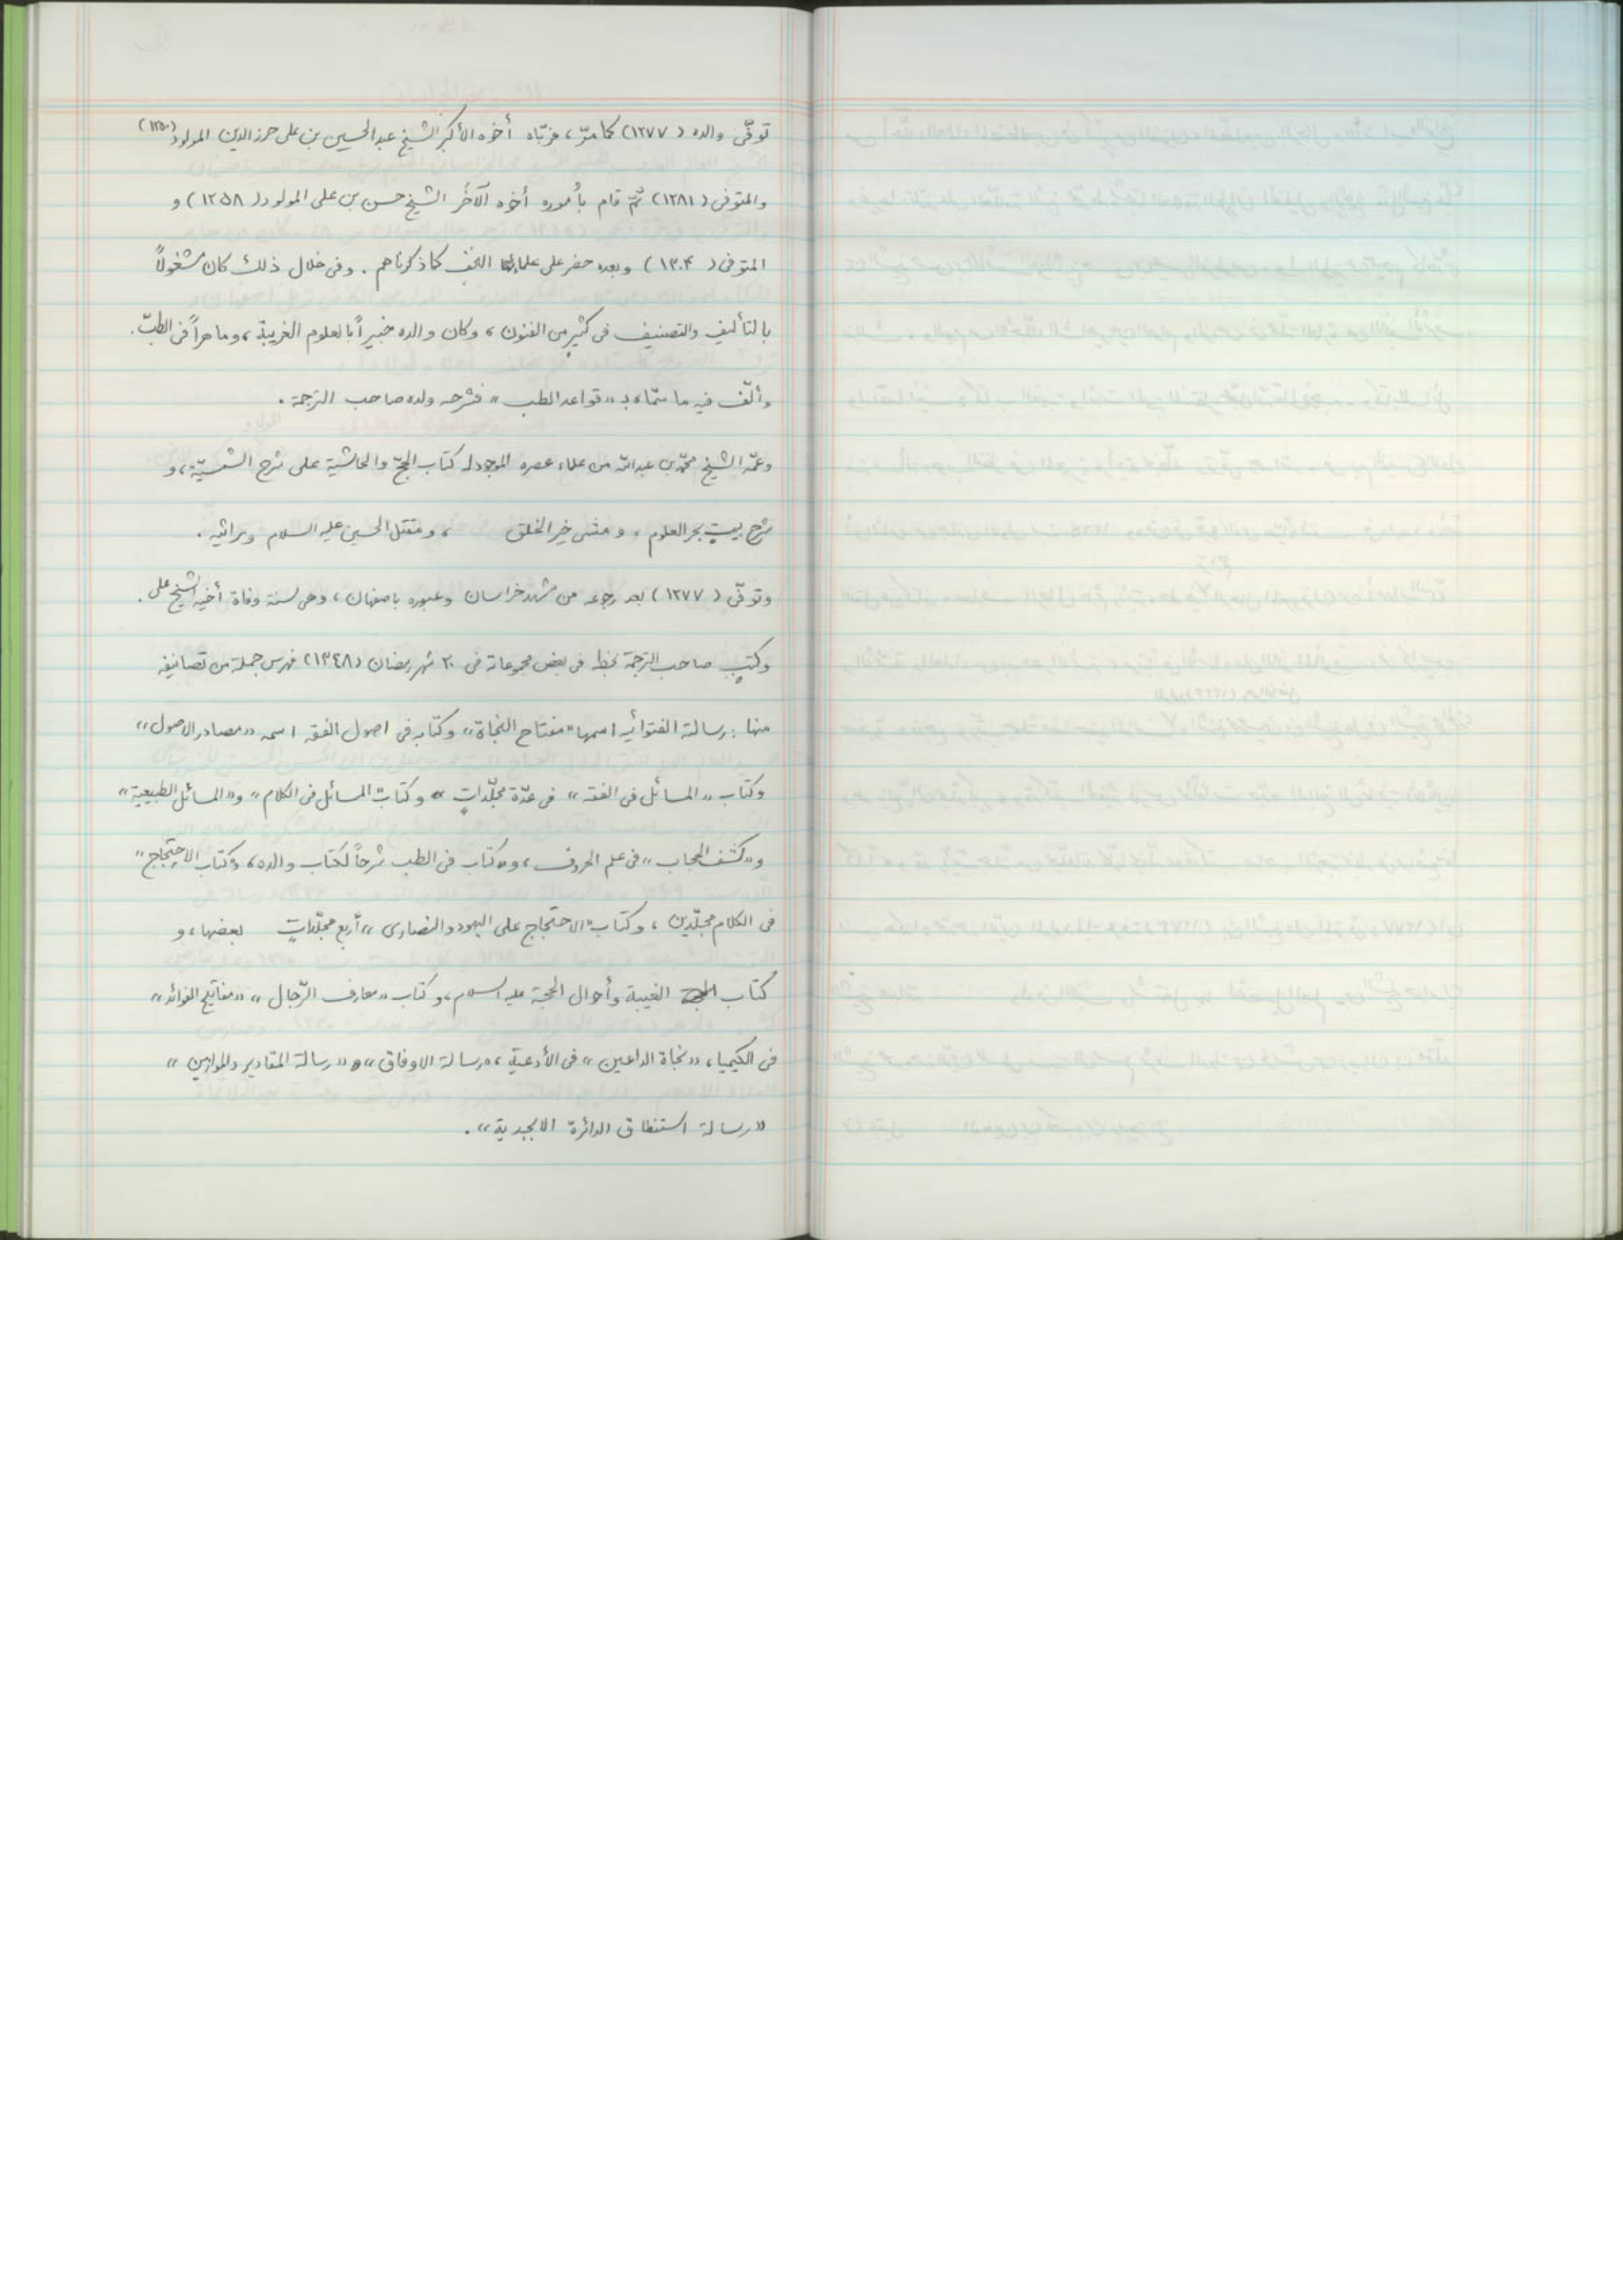 توفّی والده (۱۲۷۷) كما مرّ، فربّاه أخوه الأكبر الشيخ عبدالحسين بن علی حرزالدين المولود (۱۲۵۰)
والمتوفی (۱۲۸۱) ثمّ قام بأموره أخوه الآخر الشيخ حسن بن علی المولود (۱۲۵۸) و
المتوفی (۱۳۰۴) وبعده حضر علی علماء النجف كما ذكرناهم . وفی خلال ذلك كان مشغولاً
بالتأليف والتصنيف فی كثيرٍ من الفنون ، وكان والده خبيراً بالعلوم الغريبة ، وماهراً فی الطبّ .
وألّف فيه ما سمّاه بـ «قواعد الطب» فشرحه ولده صاحب الترجمة .
وعمّه الشيخ محمّد بن عبدالله من علماء عصره الموجود له كتاب الحجّ والحاشية علی شرح الشمسيّة ، و
شرح بيتٍ بحر العلوم ، و مشی خير الخلق ، ومقتل الحسين عليه السلام ومراثيه .
وتوفّی (۱۲۷۷) بعد رجوعه من مشهد خراسان وعبوره باصفهان ، وهی سنة وفاة أخيه الشيخ علی .
وكتب صاحب الترجمة بخطه فی بعض مجموعاته فی ۲۰ شهر رمضان (۱۳٤۸) فهرس جملة من تصانيفه
منها : رسالته الفتوائيه اسمها «مفتاح النجاة» وكتابه فی اصول الفقه اسمه «مصادر الاصول»
وكتاب «المسائل فی الفقه» فی عدّة مجلّداتٍ وكتاب «المسائل فی الكلام» و«المسائل الطبيعية»
و«كشف الحجاب» فی علم الحروف ، وكتاب فی الطب شرحاً لكتاب والده ، وكتاب «الاحتجاج»
فی الكلام مجلّدين ، وكتاب «الاحتجاج علی اليهود والنصاری» أربع مجلّداتٍ بعضها ، و
كتاب الغيبة وأحوال الحجة عليه السلام ، وكتاب «معارف الرّجال» «مفاتيح الفوائد»
فی الكيمياء ، «نجاة الداعين» فی الأدعية ، «رسالة الاوفاق» و «رسالة المقادير والموازين»
«رسالة استنطاق الدائرة الابجدية» .